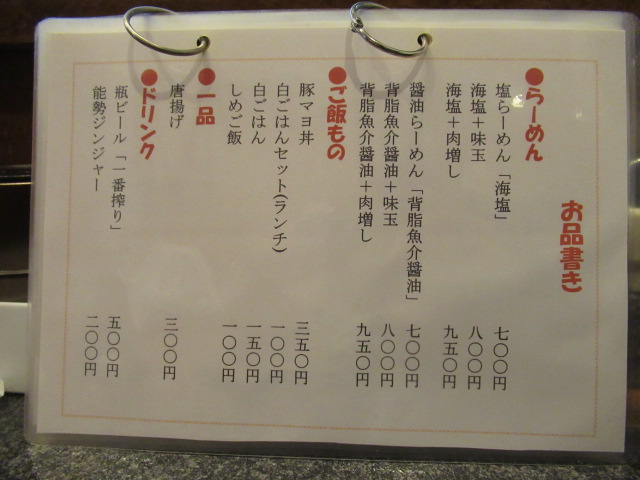 お品書き
●らーめん
塩らーめん「海塩」 七〇〇円
海塩＋味玉 八〇〇円
海塩＋肉増し 九五〇円
醤油らーめん「背脂魚介醤油」 七〇〇円
背脂魚介醤油＋味玉 八〇〇円
背脂魚介醤油＋肉増し 九五〇円
●ご飯もの
豚マヨ丼 三五〇円
白ごはんセット(ランチ) 一〇〇円
白ごはん 一五〇円
しめご飯 一〇〇円
●一品
唐揚げ 三〇〇円
●ドリンク
瓶ビール「一番搾り」 五〇〇円
能勢ジンジャー 二〇〇円